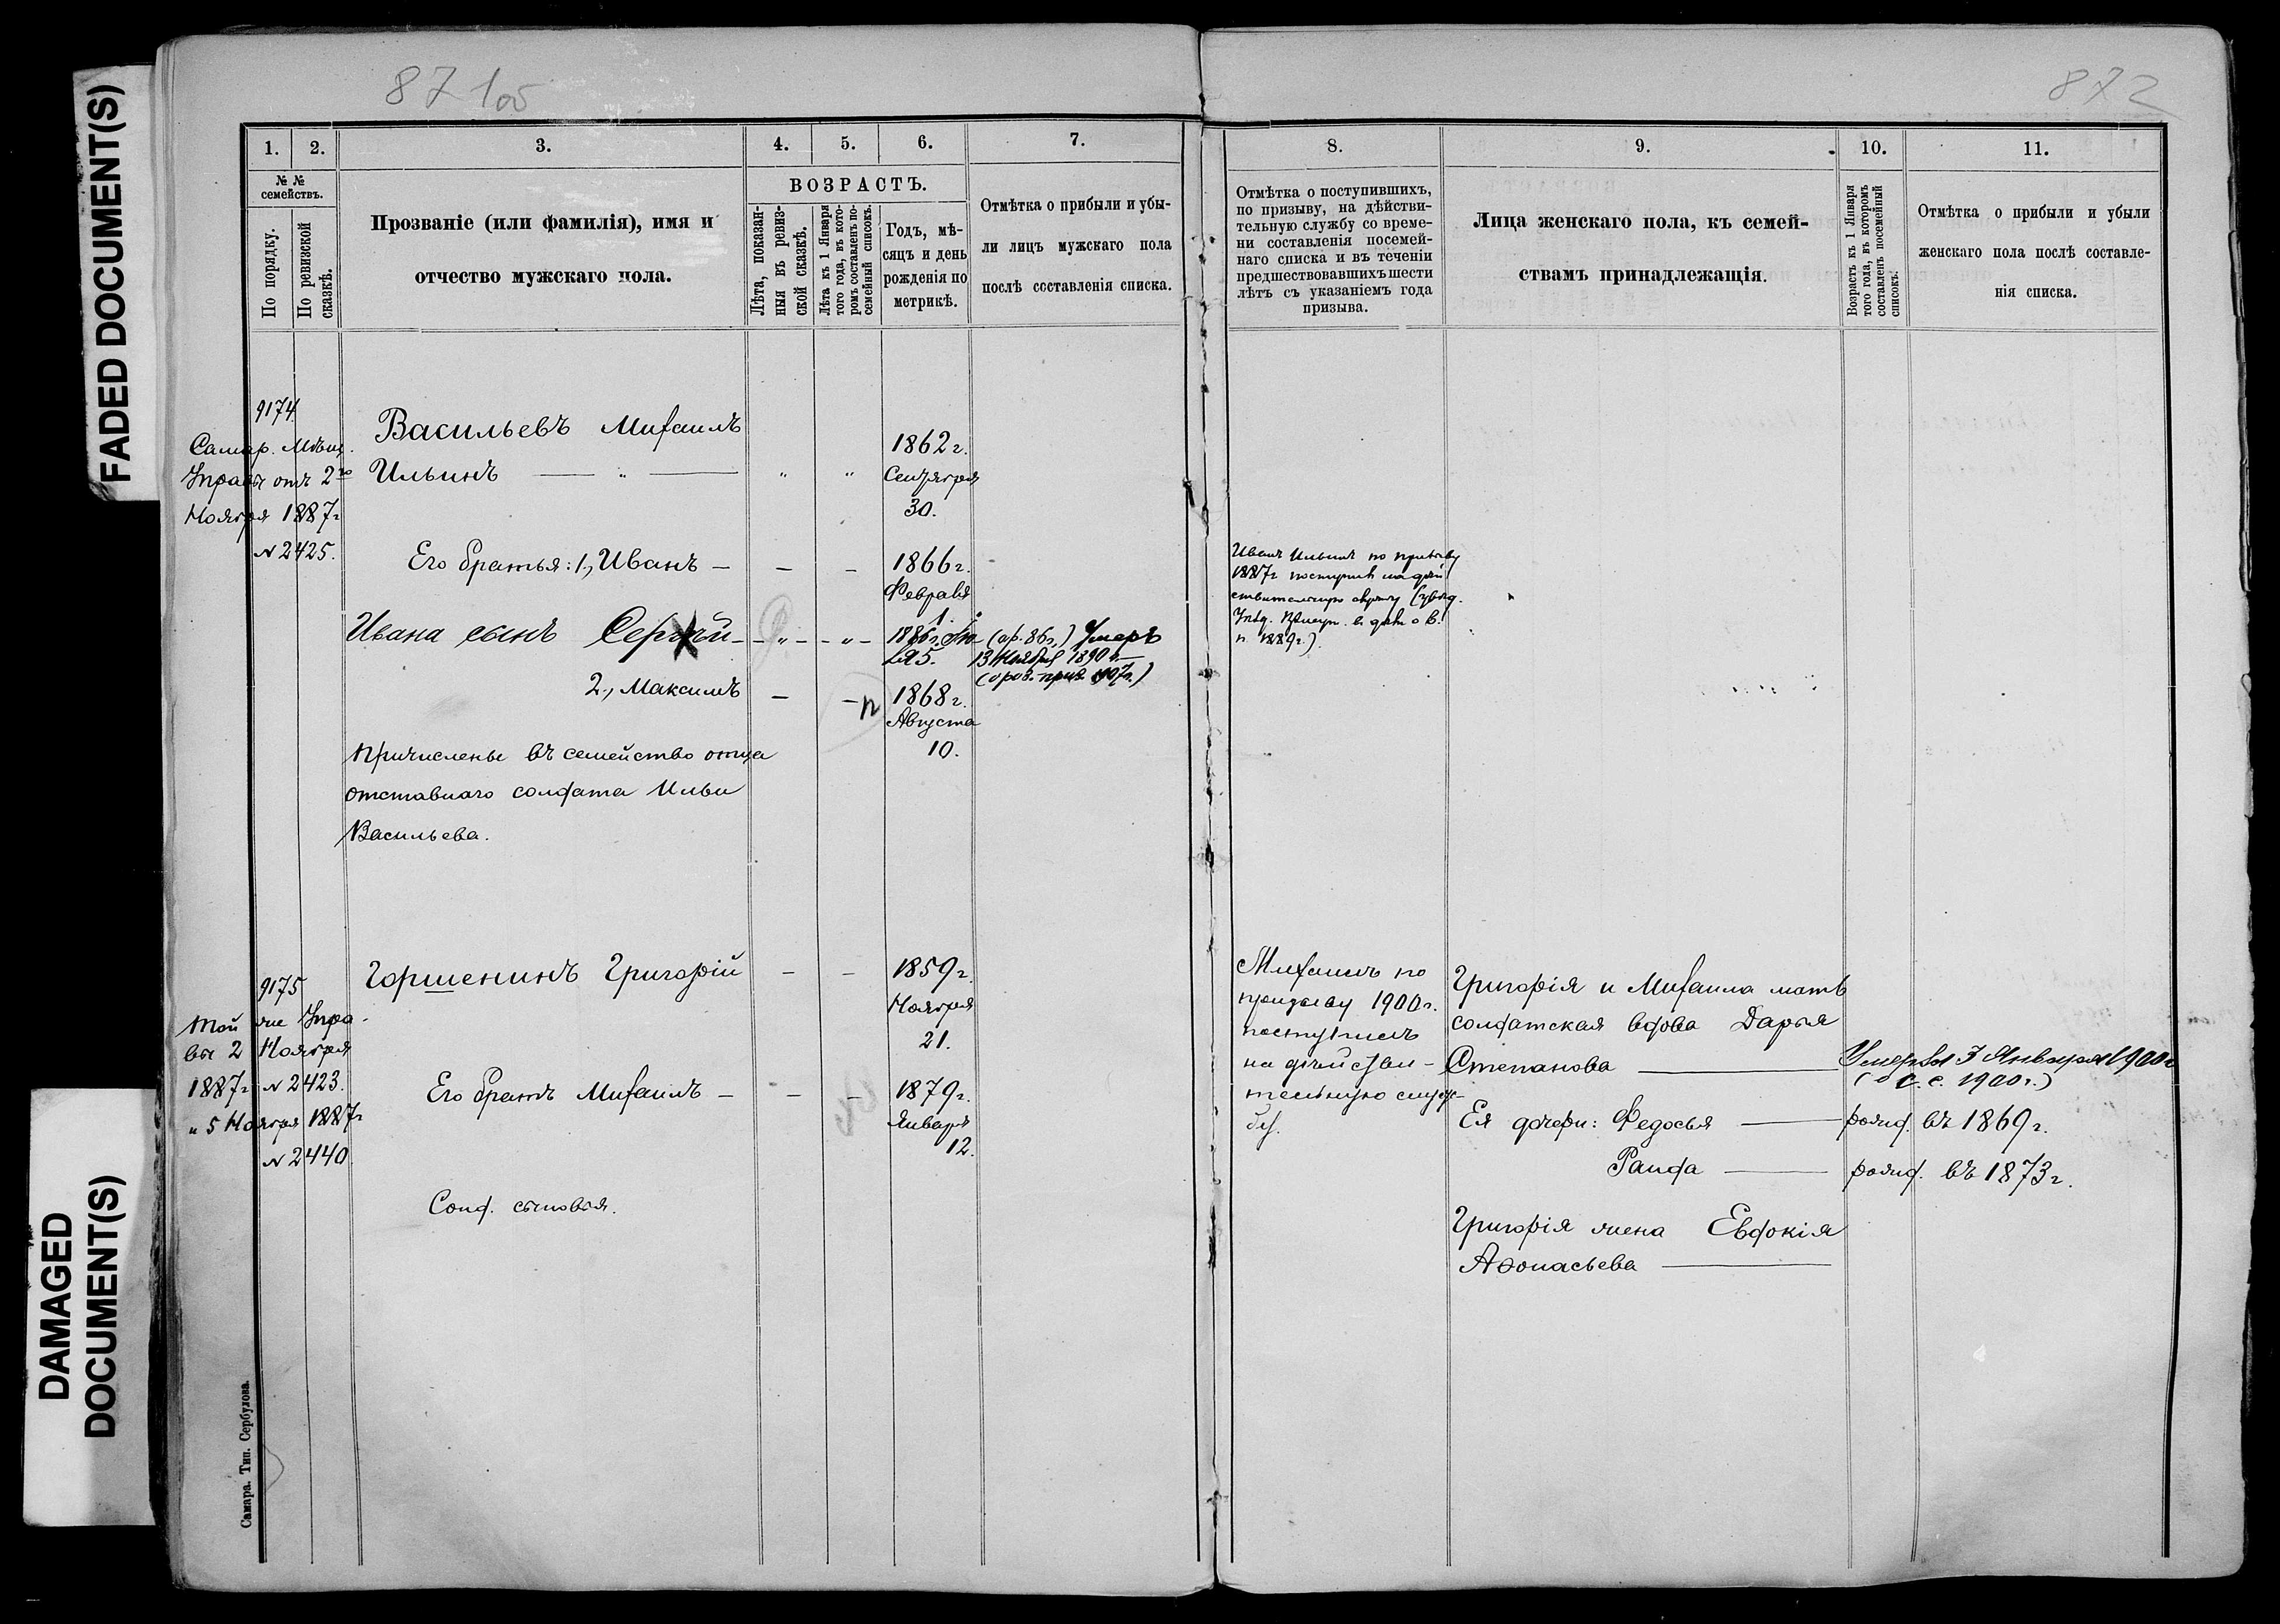 FADED DOCUMENT(S)
DAMAGED
DOCUMENT(S)
871 об
872
1.
2.
3.
4.
5.
6.
7.
№ №
семействъ.
По порядку.
По ревизской
сказкѣ.
Прозваніе (или фамилія), имя и
отчество мужскаго пола.
ВОЗРАСТЪ.
Лѣта, показан-
ныя въ ревиз-
ской сказкѣ.
Лѣта къ 1 Января
того года, въ кото-
ромъ составленъ по-
семейный списокъ.
Годъ, мѣ-
сяцъ и день
рожденія по
метрикѣ.
Отмѣтка о прибыли и убы-
ли лицъ мужскаго пола
послѣ составленія списка.
9174
Самар. Мѣщ.
Управы отъ 2го
Ноября 1887г
№ 2425.
Васильевъ Михаилъ
Ильинъ — „ —
„ „
1862г.
Сентября
30.
Его братья: 1., Иванъ —
— —
1866г.
Февраля
1.
Ивана сынъ Сергѣй
1886г. Iю
ля 5.
(ар. 86г.) Умеръ
13 Ноября 1890 г.
2., Максимъ
—
1868г.
Августа
10.
Причислены въ семейство отца
отставнаго солдата Ильи
Васильева.
9175
Той же Упра-
вы 2 Ноября
1887г. № 2423.
„ 5 Ноября 1887г
№ 2440
Горшенинъ Григорій
— —
1859г.
Ноября
21.
Его братъ Михаилъ —
— —
1879г.
Января
12.
Солд. сыновья.
Самара. Тип. Сербулова.
8.
9.
10.
11.
Отмѣтка о поступившихъ,
по призыву, на дѣйстви-
тельную службу со време-
ни составленія посемей-
наго списка и въ теченіи
предшествовавшихъ шести
лѣтъ съ указаніемъ года
призыва.
Лица женскаго пола, къ семей-
ствамъ принадлежащія.
Возрастъ къ 1 Января
того года, въ которомъ
составленъ посемейный
списокъ.
Отмѣтка о прибыли и убыли
женскаго пола послѣ составле-
нія списка.
Иванъ Ильинъ по призыву
1887г поступилъ на дѣй
ствительную службу
1889г.)
Михаилъ по
призыву 1900г.
поступилъ
на дѣйстви-
тельную служ-
бу.
Григорія и Михаила мать
солдатская вдова Дарья
Степанова —
Умерла 3 Января 1900г
(о с. с. 1900г.)
Ея дочери: Федосья — рожд. въ 1869г.
Раида — рожд. въ 1873г.
Григорія жена Евдокія
Афонасьева —